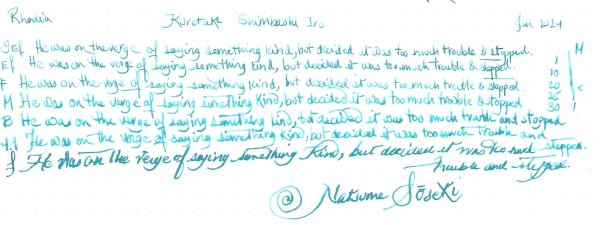 Rhodia Kuretake Shimbashi Iro Jan 2024
Jef He was on the verge of saying something kind, but decided it was too much trouble & stopped. M
Ef He was on the verge of saying something kind, but decided it was too much trouble & stopped. 1
F He was on the verge of saying something kind, but decided it was too much trouble & stopped. 10
M He was on the verge of saying something kind, but decided it was too much trouble & stopped 30 1
B He was on the verge of saying something kind, but decided it was too much trouble and stopped
1.1 He was on the verge of saying something kind, but decided it was too much trouble and stopped.
f He was on the verge of saying something kind, but decided it was too much
trouble and stopped.
Natsume Sōseki